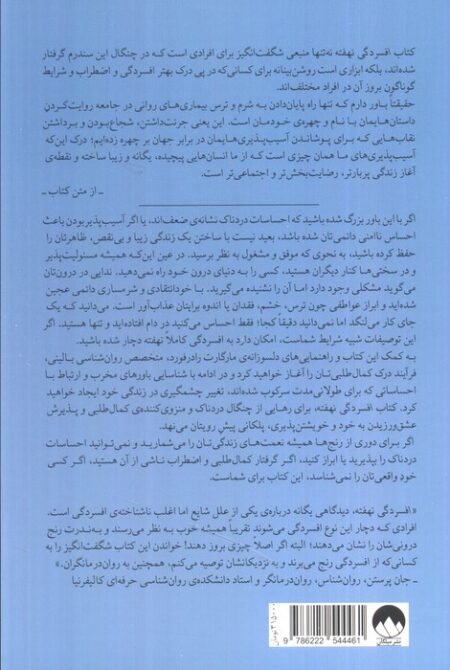 کتاب افسردگی نهفته نه‌تنها منبعی شگفت‌انگیز برای افرادی است که در چنگال این سندرم گرفتار
شده‌اند، بلکه ابزاری است روشن‌بینانه برای کسانی‌که در پی درک بهتر افسردگی و اضطراب و شرایط
گوناگون بروز آن در افراد مختلف‌اند.
حقیقتاً باور دارم که تنها راه پایان‌دادن به شرم و ترس بیماری‌های روانی در جامعه روایت‌کردنِ
داستان‌هایمان با نام و چهره‌ی خودمان است. این یعنی جرئت‌داشتن، شجاع‌بودن و برداشتن
نقاب‌هایی که برای پوشاندن آسیب‌پذیری‌هایمان در برابر جهان بر چهره زده‌ایم؛ درک این‌که
آسیب‌پذیری‌های ما همان چیزی است که از ما انسان‌هایی پیچیده، یگانه و زیبا ساخته و نقطه‌ی
آغاز زندگی پربارتر، رضایت‌بخش‌تر و اجتماعی‌تر است.
ـ از متن کتاب ـ
اگر با این باور بزرگ شده باشید که احساسات دردناک نشانه‌ی ضعف‌اند، یا اگر آسیب‌پذیربودن باعث
احساس ناامنی دائمی‌تان شده باشد، بعید نیست با ساختن یک زندگی زیبا و بی‌نقص، ظاهرتان را
حفظ کرده باشید، به نحوی که موفق و مشغول به نظر برسید. در عین این‌که همیشه مسئولیت‌پذیر
و در سختی‌ها کنار دیگران هستید، کسی را به دنیای درون خود راه نمی‌دهید. ندایی در درون‌تان
می‌گوید مشکلی وجود دارد اما آن را نشنیده می‌گیرید. با خودانتقادی و شرمساری دائمی عجین
شده‌اید و ابراز عواطفی چون ترس، خشم، فقدان یا اندوه برایتان عذاب‌آور است. می‌دانید که یک
جای کار می‌لنگد اما نمی‌دانید دقیقاً کجا؛ فقط احساس می‌کنید در دام افتاده‌اید و تنها هستید. اگر
این توصیفات شبیه شرایط شماست، امکان دارد به افسردگی کاملاً نهفته دچار شده باشید.
به کمک این کتاب و راهنمایی‌های دلسوزانه‌ی مارگارت رادرفورد، متخصص روان‌شناسی بالینی،
فرآیند درک کمال‌طلبی‌تان را آغاز خواهید کرد و در ادامه با شناسایی باورهای مخرب و ارتباط با
احساساتی که برای طولانی‌مدت سرکوب شده‌اند، تغییر چشمگیری در زندگی خود ایجاد خواهید
کرد. کتاب افسردگی نهفته، برای رهایی از چنگال دردناک و منزوی‌کننده‌ی کمال‌طلبی و پذیرش
عشق‌ورزیدن به خود و خویشتن‌پذیری، پلکانی پیشِ رویتان می‌نهد.
اگر برای دوری از رنج‌ها همیشه نعمت‌های زندگی‌تان را می‌شمارید و نمی‌توانید احساسات
دردناک را بپذیرید یا ابراز کنید، اگر گرفتار کمال‌طلبی و اضطراب ناشی از آن هستید، اگر کسی
خودِ واقعی‌تان را نمی‌شناسد، این کتاب برای شماست.
«افسردگی نهفته، دیدگاهی یگانه درباره‌ی یکی از علل شایع اما اغلب ناشناخته‌ی افسردگی است.
افرادی که دچار این نوع افسردگی می‌شوند تقریباً همیشه خوب به نظر می‌رسند و به‌ندرت رنج
درونی‌شان را نشان می‌دهند؛ البته اگر اصلاً چیزی بروز دهند! خواندن این کتاب شگفت‌انگیز را به
کسانی‌که از افسردگی رنج می‌برند و به نزدیکانشان توصیه می‌کنم، همچنین به روان‌درمانگران.»
ـ جان پرستن، روان‌شناس، روان‌درمانگر و استاد دانشکده‌ی روان‌شناسی حرفه‌ای کالیفرنیا
۳۱۵۰۰۰ تومان
9 786222 544461